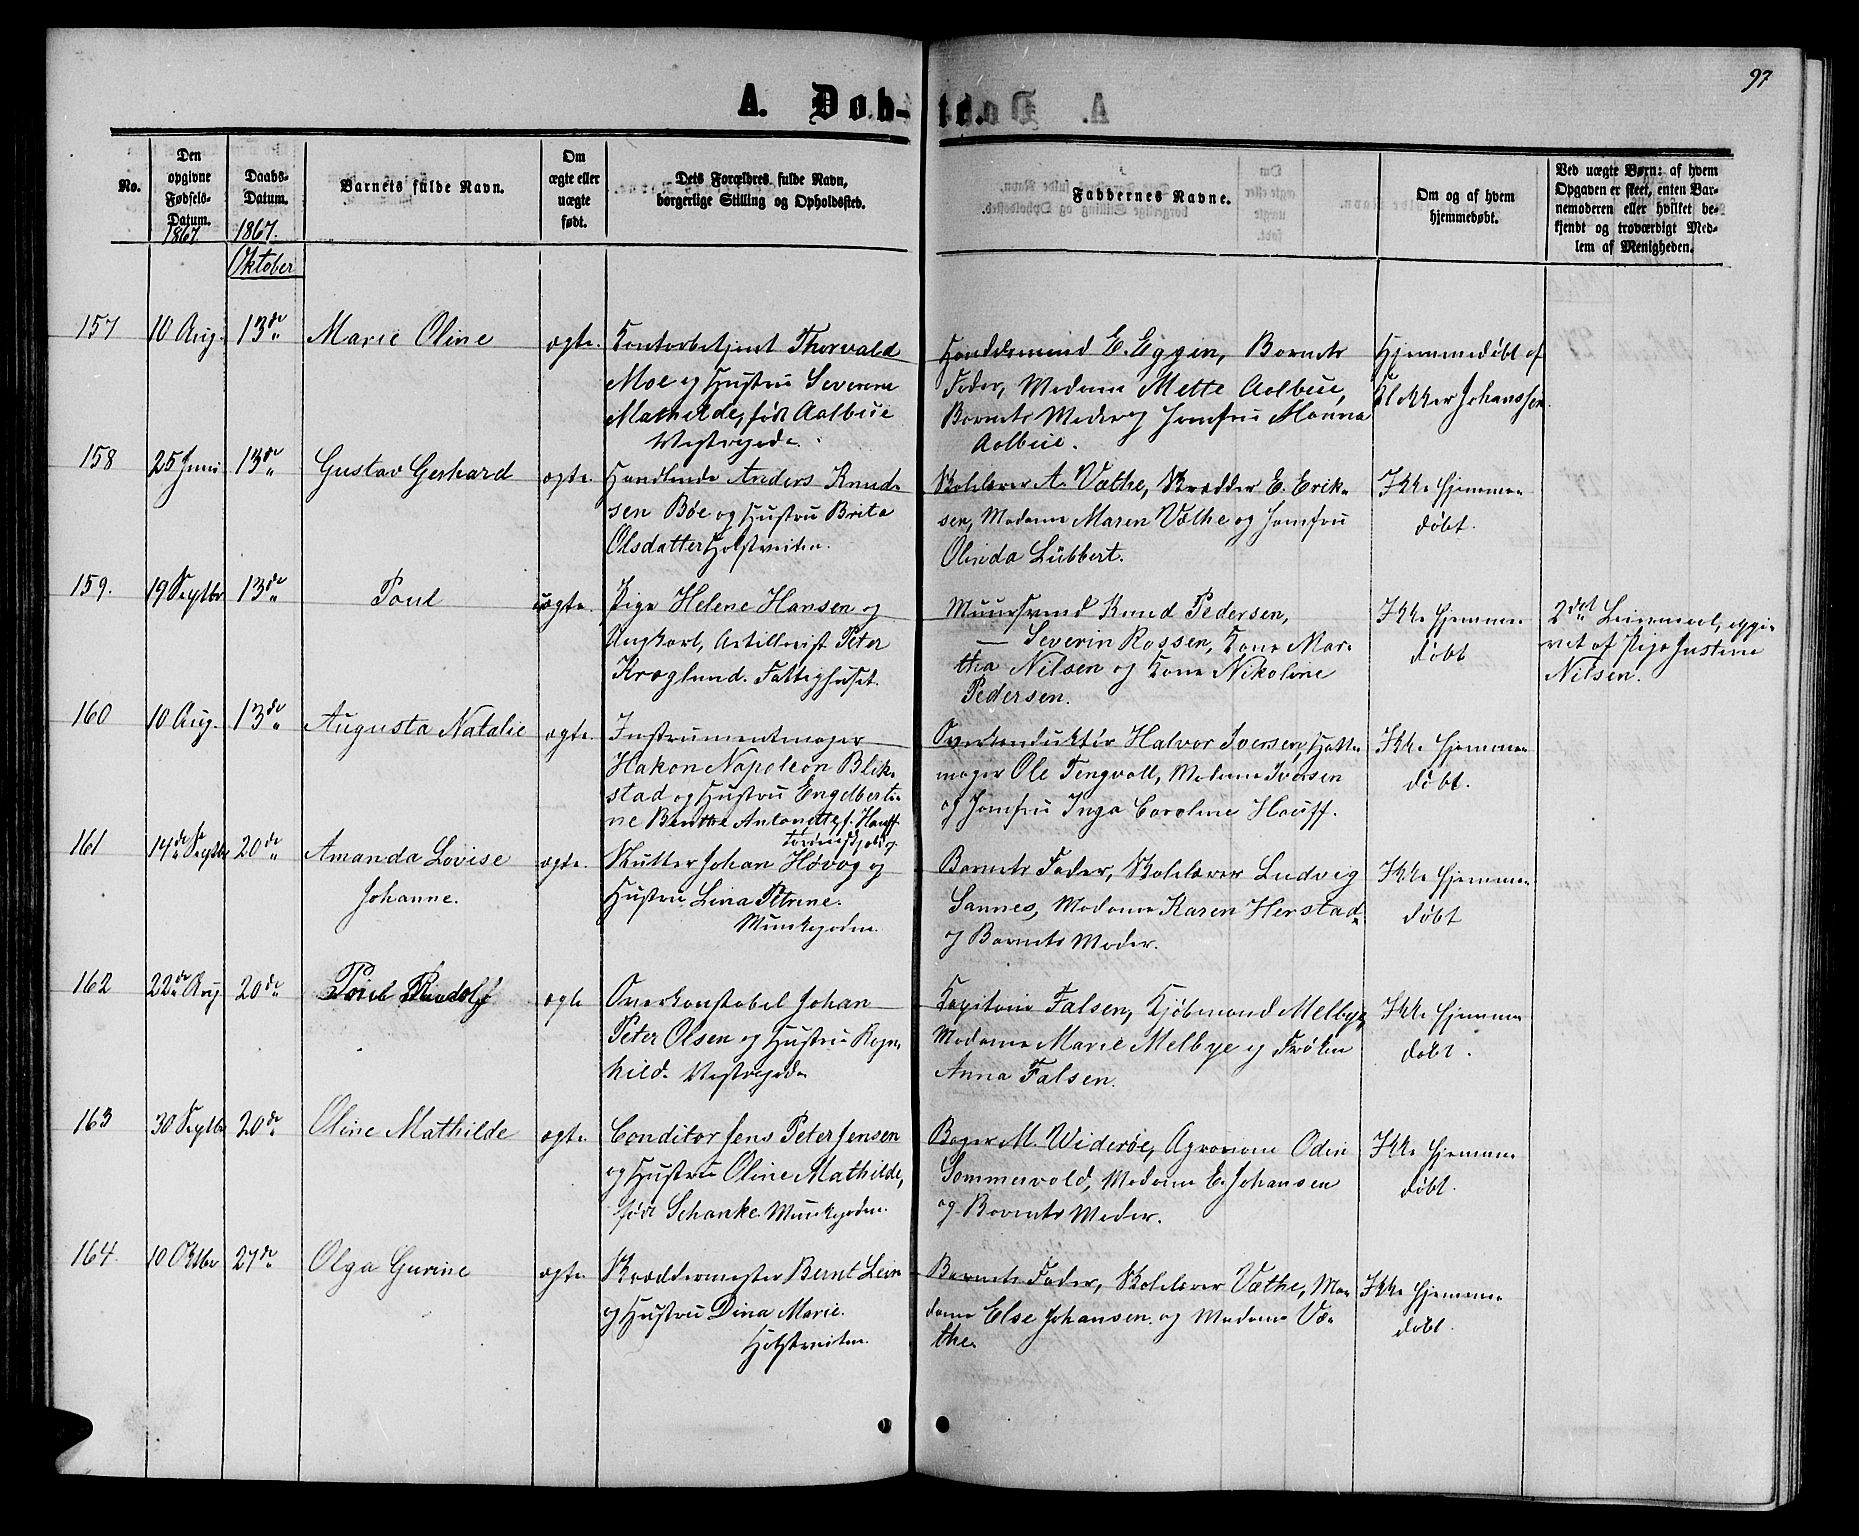 97
A. Døb-te.
No.
Den
opgivne
Fødsels-
Datum.
1867.
Daabs-
Datum.
1867.
Oktober
Barnets fulde Navn.
Om
ægte eller
uægte
født.
Dets Forældres fulde Navn,
borgerlige Stilling og Opholdssted.
Faddernes Navne.
Om og af hvem
hjemmedøbt.
Ved uægte Børn: af hvem
Opgaven er skeet, enten Bar-
nemoderen eller hvilket be-
kjendt og troværdigt Med-
lem af Menigheden.
157
10 Aug.
13de
Marie Oline
ægte.
Kontorbetjent Thorvald
Moe og Hustru Severine
Mathilde, født Aalbue
Vestregade.
Handelsmand E. Eggen, Barnets
Fader, Madame Mette Aalbue,
Barnets Moder og Jomfru Hanna
Aalbue.
Hjemmedøbt af
Klokker Johanssen.
158
25 Juni
13de
Gustav Gerhard
ægte.
Handlende Anders Knud-
sen Bøe og Hustru Brita
Olsdatter Holstveiten.
Skolelærer A. Væthe, Skrædder E. Erik-
sen, Madame Maren Væthe og Jomfru
Olinda Lübbert.
Ikke hjemme-
døbt.
159.
19 Septbr
13de
Poul
uægte.
Pige Helene Hansen og
Ungkarl, Artillerist Peter
Kroglund. Fattighuset.
Muursvend Knud Pedersen,
— Severin Rossen, Kone Mar-
tha Nilsen og Kone Nikoline
Pedersen.
Ikke hjemme-
døbt
2det Leiermaal, opgi-
vet af Pige Justine
Nilsen.
160
10 Aug.
13de
Augusta Natalie
ægte.
Instrumentmager
Hakon Napoleon Blik-
stad og Hustru Engelberti-
ne Benthe Antonette f. Hauff
Overkonduktør Halvor Iversen, Hatte-
mager Ole Tengvall, Madame Iversen
og Jomfru Inga Caroline Hauff.
Ikke hjemme-
døbt.
161
14de Septbr
20de
Amanda Lovise
Johanne.
ægte.
Skutter Johan Høvog og
Hustru Lina Petrine.
Munkegaden.
Barnets Fader, Skolelærer Ludvig
Sannes, Madame Karen Herstad
og Barnets Moder.
Ikke hjemme-
døbt
162
22de Aug
20de
Poul Rudolf
ægte
Overkonstabel Johan
Peter Olsen og Hustru Ragn-
hild. Vestregade
Kapitain Falsen, Kjøbmand Melbye,
Madame Marie Melbye og Frøken
Anna Falsen.
Ikke hjemme-
døbt.
163
30 Septbr
20de
Oline Mathilde
ægte.
Conditor Jens Peter Jensen
og Hustru Oline Mathilde,
født Schanke Munkegaden.
Bager M. Widerøe, Agronom Odin
Sommervold, Madame E. Johansen
og Barnets Moder.
Ikke hjemme-
døbt.
164.
10 Oktbr
27de
Olga Gurine
ægte.
Skræddermester Bernt Lein
og Hustru Dina Marie.
Holstveiten.
Barnets Fader, Skolelærer Væthe, Ma-
dame Else Johansen og Madame Væ-
the.
Ikke hjemme-
døbt.